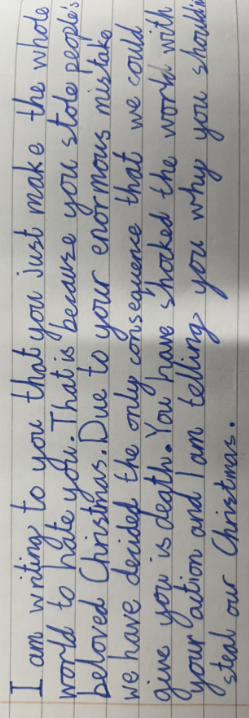 I am writing to you that you just make the whole
world to hate you. That is because you stole people's
beloved Christmas. Due to your enormous mistake
we have decided the only consequence that we could
give you is death. You have shocked the world with
your action and I am telling you why you shouldn
steal our Christmas.